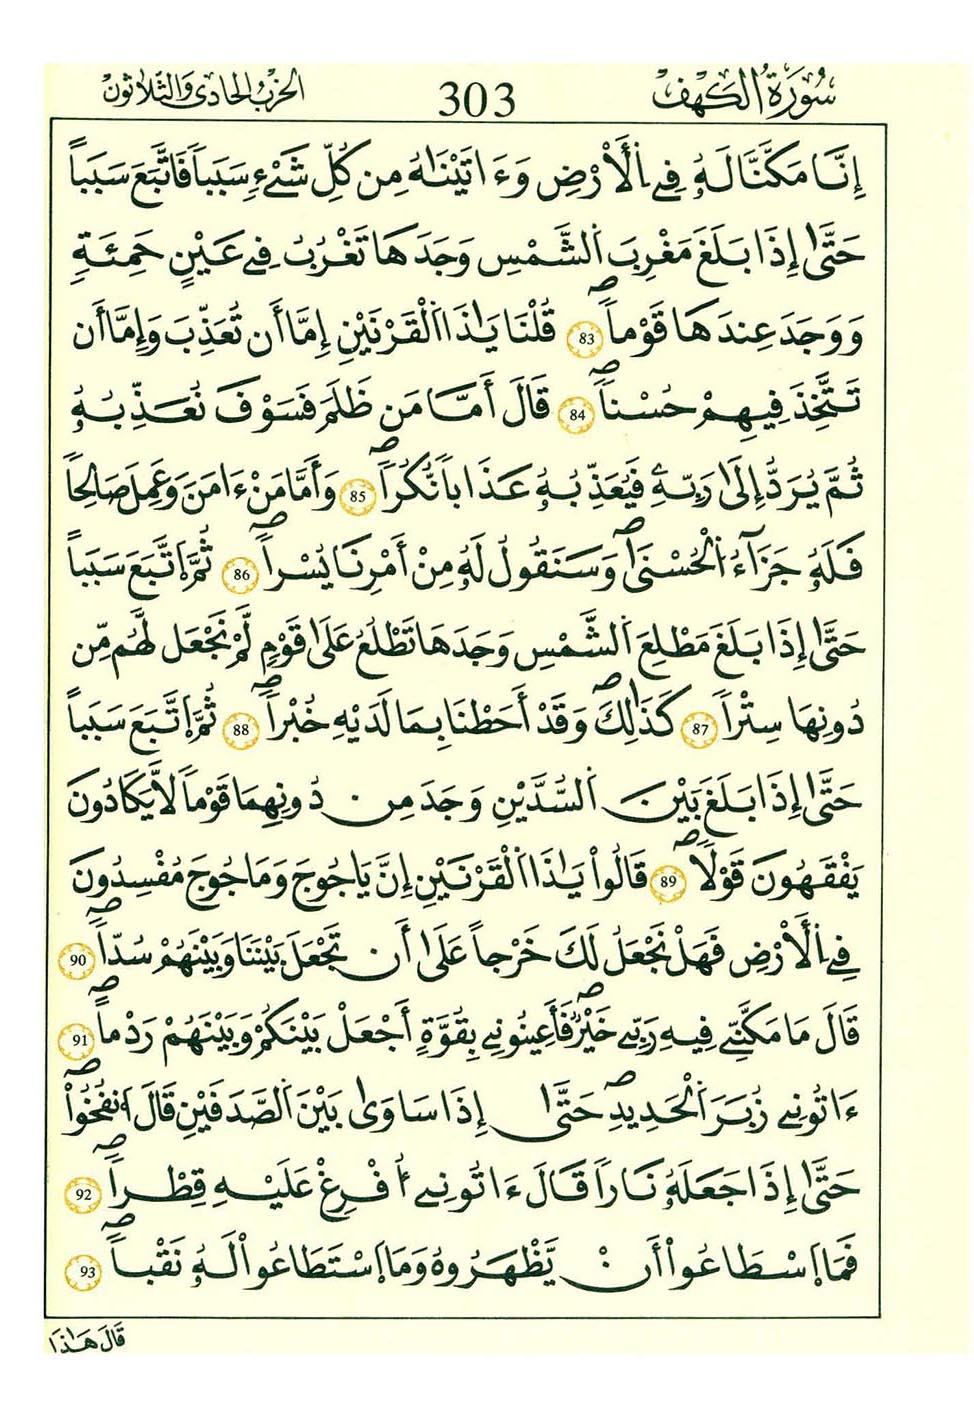 سُورَةُ الكَهْف 303 الحزب الحادي والثلاثون
إِنَّا مَكَّنَّا لَهُۥ فِے اِ۬لَارْضِ وَءَاتَيْنَٰهُ مِن كُلِّ شَےْءٖ سَبَباٗ فَاتَّبَعَ سَبَباً
حَتَّىٰٓ إِذَا بَلَغَ مَغْرِبَ اَ۬لشَّمْسِ وَجَدَهَا تَغْرُبُ فِے عَيْنٍ حَمِئَةٖ
وَوَجَدَ عِندَهَا قَوْماٗ 83 قُلْنَا يَٰذَا اَ۬لْقَرْنَيْنِ إِمَّا أَن تُعَذِّبَ وَإِمَّا أَن
تَتَّخِذَ فِيهِمْ حُسْناٗ 84 قَالَ أَمَّا مَن ظَلَمَ فَسَوْفَ نُعَذِّبُهُۥ
ثُمَّ يُرَدُّ إِلَىٰ رَبِّهِۦ فَيُعَذِّبُهُۥ عَذَاباٗ نُّكُراٗ 85 وَأَمَّا مَنْ ءَامَنَ وَعَمِلَ صَالِحاٗ
فَلَهُۥ جَزَآءُ اُ۬لْحُسْنَىٰ وَسَنَقُولُ لَهُۥ مِنْ أَمْرِنَا يُسْراٗ 86 ثُمَّ اَتَّبَعَ سَبَباً
حَتَّىٰٓ إِذَا بَلَغَ مَطْلِعَ اَ۬لشَّمْسِ وَجَدَهَا تَطْلُعُ عَلَىٰ قَوْمٖ لَّمْ نَجْعَل لَّهُم مِّن
دُونِهَا سِتْراٗ 87 كَذَٰلِكَ وَقَدْ أَحَطْنَا بِمَا لَدَيْهِ خُبْراٗ 88 ثُمَّ اَتَّبَعَ سَبَباً
حَتَّىٰٓ إِذَا بَلَغَ بَيْنَ اَ۬لسُّدَّيْنِ وَجَدَ مِن دُونِهِمَا قَوْماٗ لَّا يَكَادُونَ
يَفْقَهُونَ قَوْلاٗ 89 قَالُواْ يَٰذَا اَ۬لْقَرْنَيْنِ إِنَّ يَاجُوجَ وَمَاجُوجَ مُفْسِدُونَ
فِے اِ۬لَارْضِ فَهَلْ نَجْعَلُ لَكَ خَرْجاً عَلَىٰٓ أَن تَجْعَلَ بَيْنَنَا وَبَيْنَهُمْ سُدّاٗ 90
قَالَ مَا مَكَّنِّے فِيهِ رَبِّے خَيْرٞ فَأَعِينُونِے بِقُوَّةٍ أَجْعَلْ بَيْنَكُمْ وَبَيْنَهُمْ رَدْماً 91
ءَاتُونِے زُبَرَ اَ۬لْحَدِيدِ حَتَّىٰٓ إِذَا سَاوَىٰ بَيْنَ اَ۬لصَّدَفَيْنِ قَالَ اَ۟نفُخُواْ
حَتَّىٰٓ إِذَا جَعَلَهُۥ نَاراٗ قَالَ ءَاتُونِےٓ أُفْرِغْ عَلَيْهِ قِطْراٗ 92
فَمَا اَسْطَاعُواْ أَنْ يَّظْهَرُوهُ وَمَا اَسْتَطَاعُواْ لَهُۥ نَقْباٗ 93
قَالَ هَٰذَا